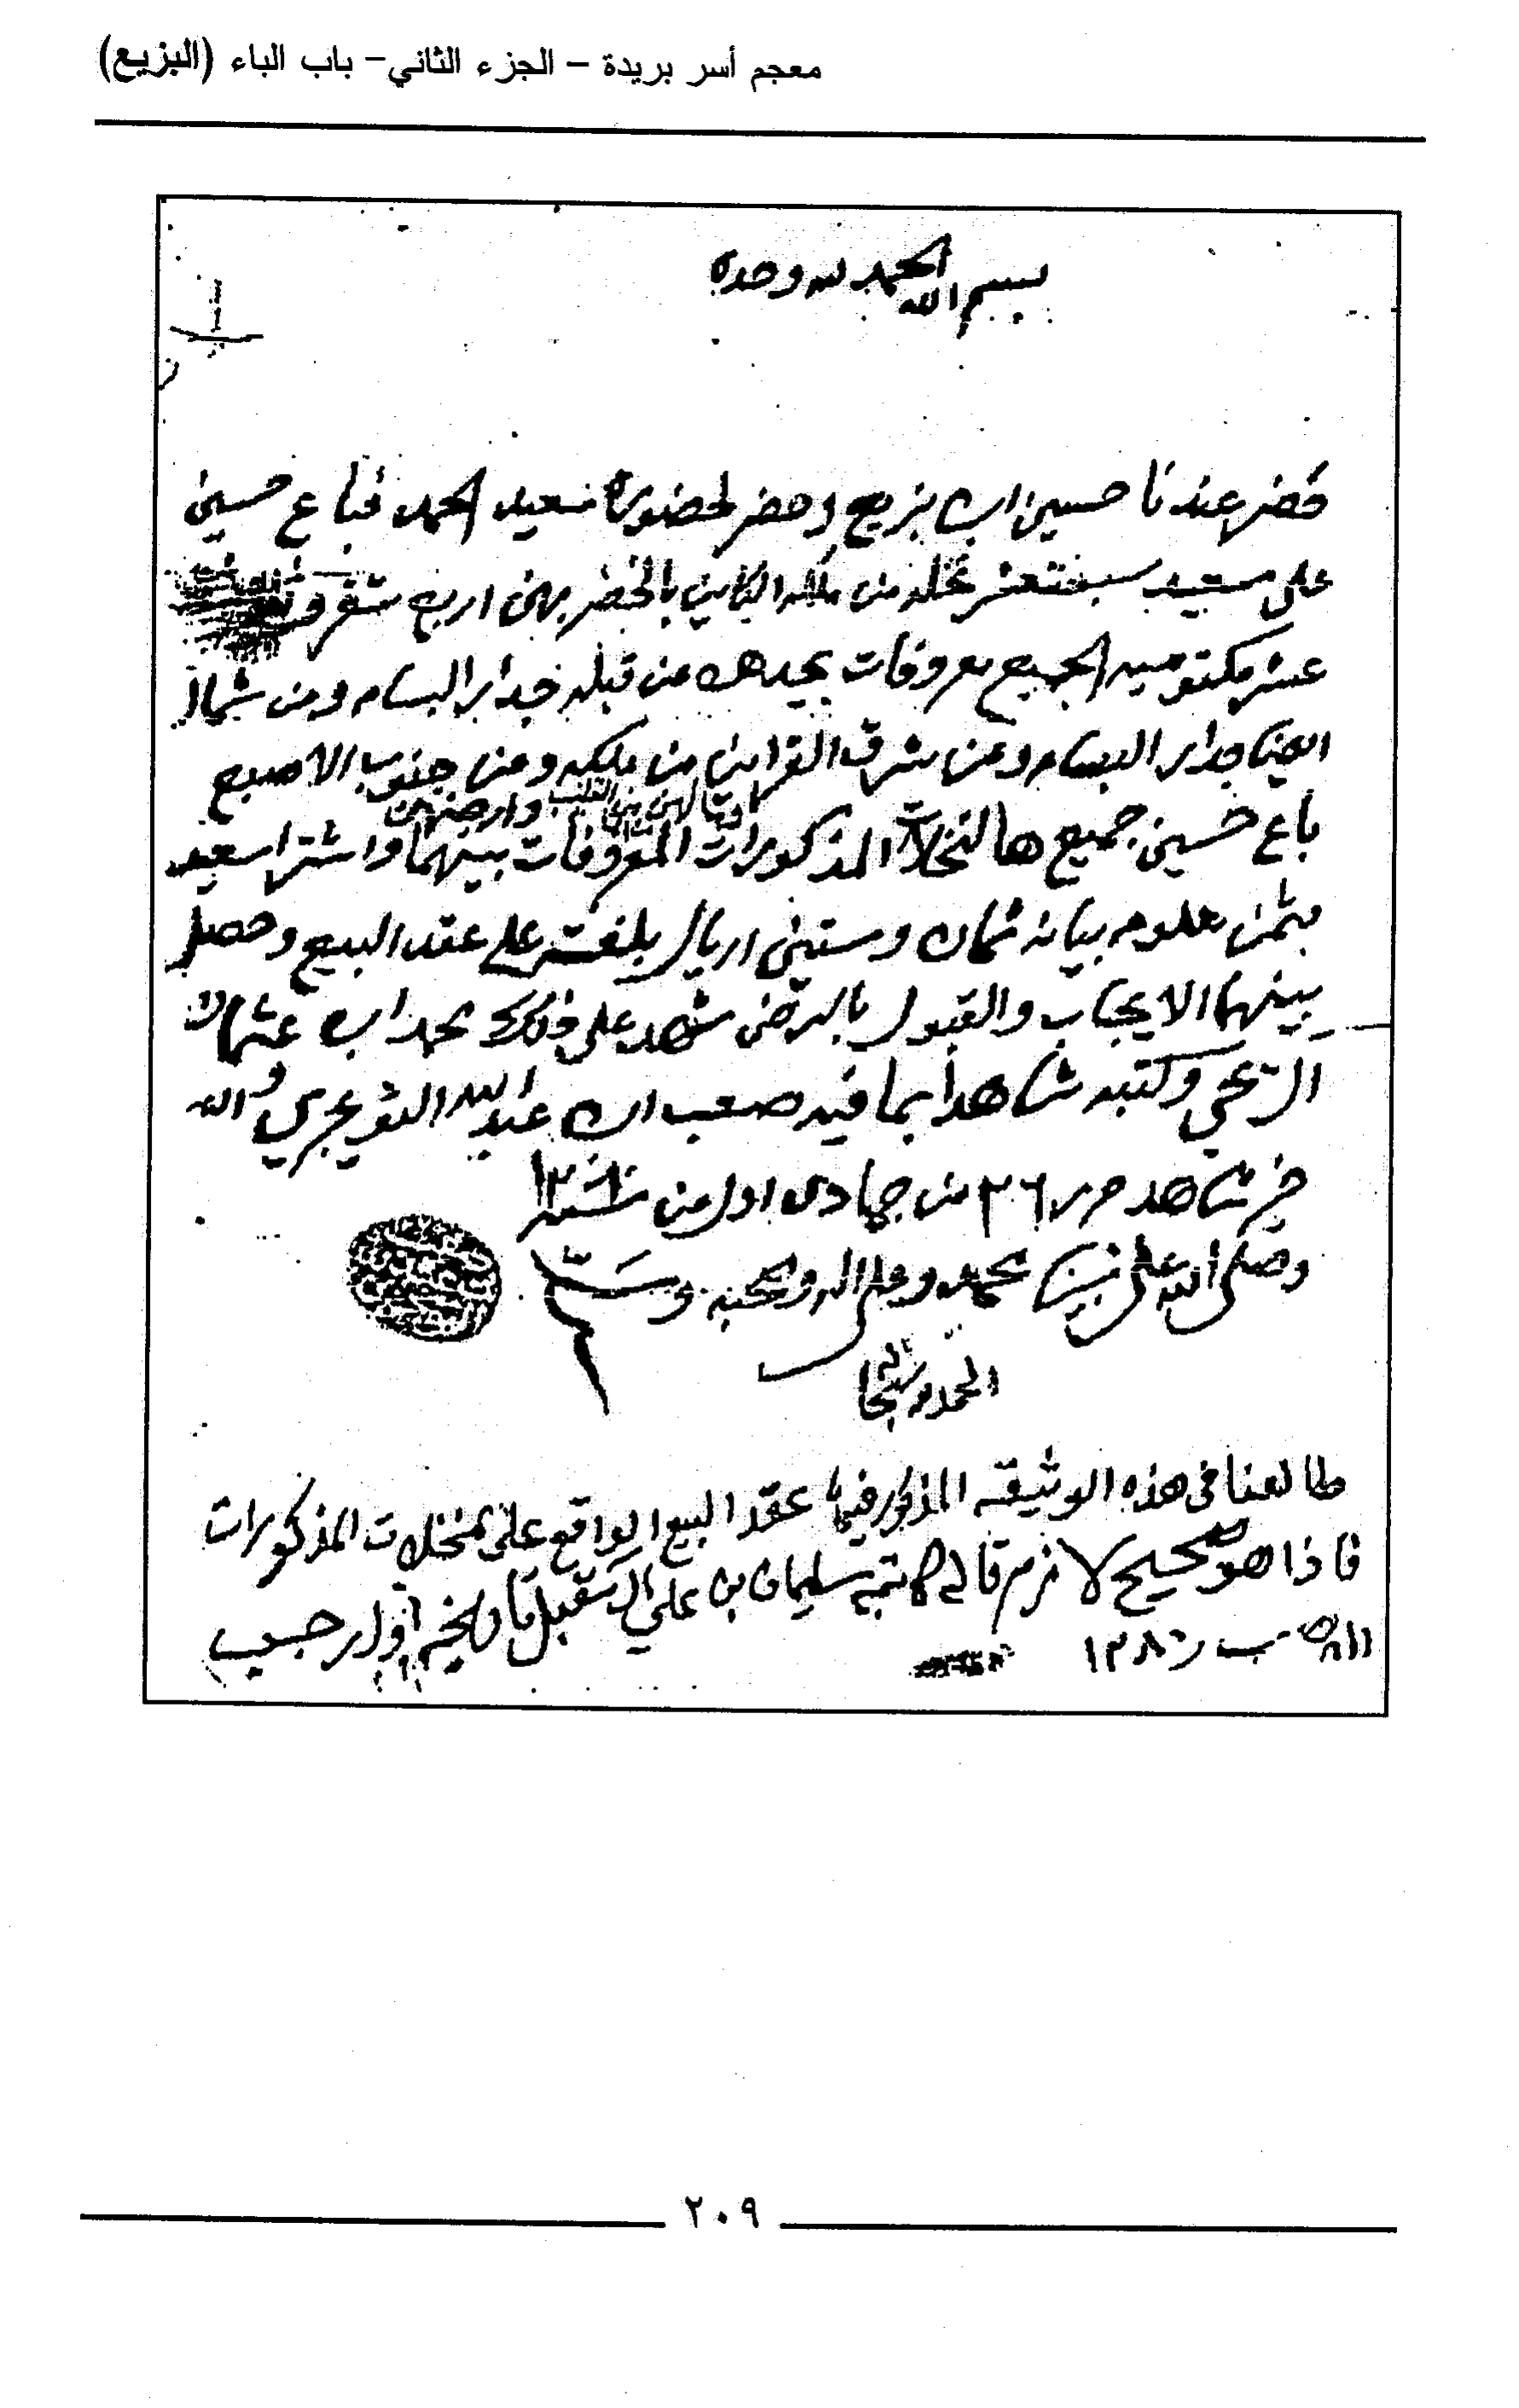 معجم أسر بريدة – الجزء الثاني– باب الباء (البزيع)
بسم الله الحمد لله وحده
حضر عندنا حسين ابن بزيع وحضر لحضوره سعيد الحمد فباع حسين
على سعيد سبعتعشر نخله من ملكه الكاين بالخضر بهن اربع شقر و
عشر مكتوميه الجميع معروفات يحدهن من قبله جدار البسام ومن شمال
ايضا جدار البسام ومن شرق القراين من ملكه ومن جنوب الاصيبع
وما لهن من القليب وارضهن
باع حسين جميع هالنخلات المذكورات المعروفات بينهما واشترا سعيد
بثمن معلوم بيانه ثمان وستين اريال بلغت على عقد البيع وحصل
بينهما الايجاب والقبول بالرضى شهد على ذلك محمد ابن عثمان
وكتبه شاهداً بما فيه صعب ابن عبد الله التويجري والله
خير شاهد حرر ٢٦ من جمادى اول من سنة
وصلى الله على نبينا محمد وعلى اله وصحبه وسلم
الحمد لله سبحانه
طالعنا في هذه الوثيقه المذكور فيها عقد البيع الواقع على نخلات المذكورات
فاذا هو صحيح لازم قاله كاتبه سليمان بن علي المقبل تاريخه اول رجب
٢٠٩